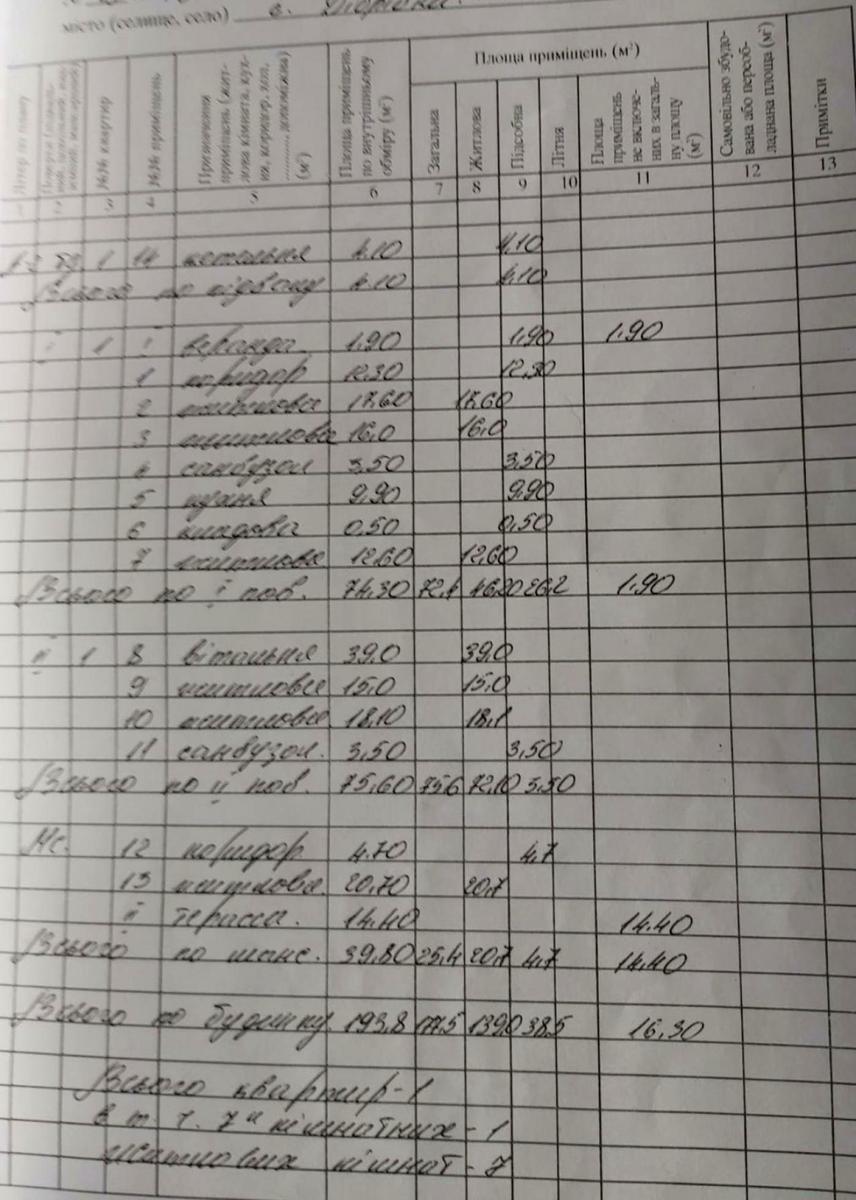 місто (селище, село) с.
Площа приміщень (м²)
Літер по плану
№№ квартир
№№ приміщень
Призначення приміщень (житлова кімната, кухня, коридор, хол, ......... допоміжна) (м²)
Площа приміщень по внутрішньому обміру (м²)
Загальна
Житлова
Підсобна
Літня
Площа приміщень не включених в загальну площу (м²)
Самовільно збудована або переобладнана площа (м²)
Примітки
3 4 5 6 7 8 9 10 11 12 13
1 14 котельня 4.10 4.10
Всього по підвалу 4.10 4.10
І 1 І веранда 1.90 1.90 1.90
1 коридор 12.30 12.30
2 житлова 17.60 17.60
3 житлова 16.0 16.0
4 санвузол 3.50 3.50
5 кухня 9.90 9.90
6 кладова 0.50 0.50
7 житлова 12.60 12.60
Всього по І пов. 74.30 72.4 46.20 26.2 1.90
ІІ 1 8 вітальня 39.0 39.0
9 житлова 15.0 15.0
10 житлова 18.10 18.1
11 санвузол. 3.50 3.50
Всього по ІІ пов. 75.60 75.6 72.10 3.50
Мс. 12 коридор 4.70 4.7
13 житлова. 20.70 20.7
ІІ терасса. 14.40 14.40
Всього по манс. 39.80 25.4 20.7 4.7 14.40
Всього по будинку 193.8 177.5 139.0 38.5 16.30
Всього квартир - 1
в т. ч. 7и кімнатних - 1
житлових кімнат - 7